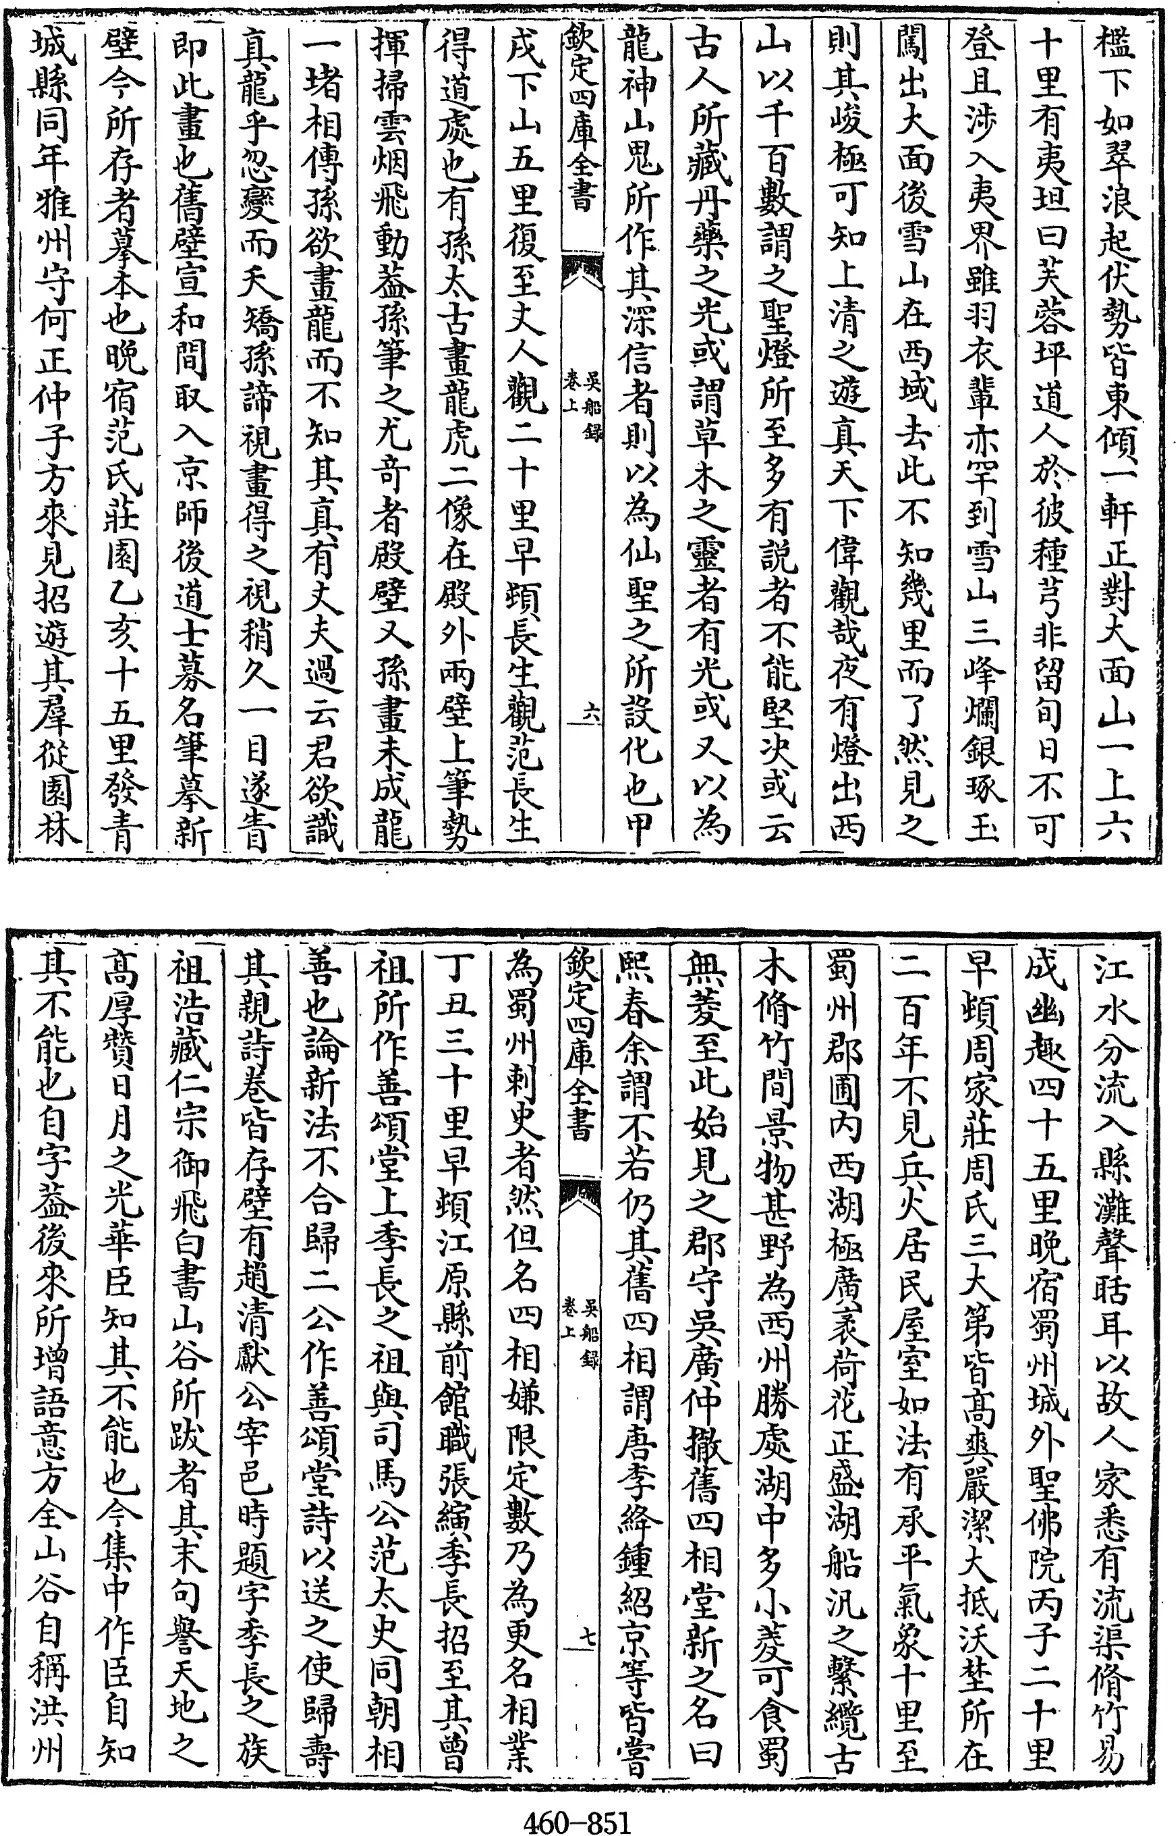 檻下如翠浪起伏勢皆東傾一軒正對大面山一上六
十里有夷坦曰芙蓉坪道人於彼種芎非留旬日不可
登且涉入夷界雖羽衣輩亦罕到雪山三峰爛銀琢玉
闖出大面後雪山在西域去此不知幾里而了然見之
則其峻極可知上清之遊真天下偉觀哉夜有燈出西
山以千百數謂之聖燈所至多有説者不能堅决或云
古人所藏丹藥之光或謂草木之靈者有光或又以為
龍神山鬼所作其深信者則以為仙聖之所設化也甲
欽定四庫全書
吳船録
卷上
六
戌下山五里復至丈人觀二十里早頓長生觀范長生
得道處也有孫太古畫龍虎二像在殿外兩壁上筆勢
揮掃雲烟飛動葢孫筆之尤竒者殿壁又孫畫未成龍
一堵相傳孫欲畫龍而不知其真有丈夫過云君欲識
真龍乎忽變而夭矯孫諦視畫得之視稍久一目遂眚
即此畫也舊壁宣和間取入京師後道士募名筆摹新
壁今所存者摹本也晩宿范氏莊園乙亥十五里發青
城縣同年雅州守何正仲子方來見招遊其羣從園林
江水分流入縣灘聲聒耳以故人家悉有流渠脩竹易
成幽趣四十五里晩宿蜀州城外聖佛院丙子二十里
早頓周家莊周氏三大第皆髙爽嚴潔大抵沃埜所在
二百年不見兵火居民屋室如法有承平氣象十里至
蜀州郡圃内西湖極廣袤荷花正盛湖船汎之繫纜古
木脩竹間景物甚野為西州勝處湖中多小菱可食蜀
無菱至此始見之郡守吳廣仲撤舊四相堂新之名曰
熙春余謂不若仍其舊四相謂唐李絳鍾紹京等皆嘗
欽定四庫全書
吳船録
卷上
七
為蜀州刺史者然但名四相嫌限定數乃為更名相業
丁丑三十里早頓江原縣前館職張縯季長招至其曾
祖所作善頌堂上季長之祖與司馬公范太史同朝相
善也論新法不合歸二公作善頌堂詩以送之使歸壽
其親詩巻皆存壁有趙清獻公宰邑時題字季長之族
祖浩藏仁宗御飛白書山谷所跋者其末句譽天地之
髙厚贊日月之光華臣知其不能也今集中作臣自知
其不能也自字葢後來所增語意方全山谷自稱洪州
460-851